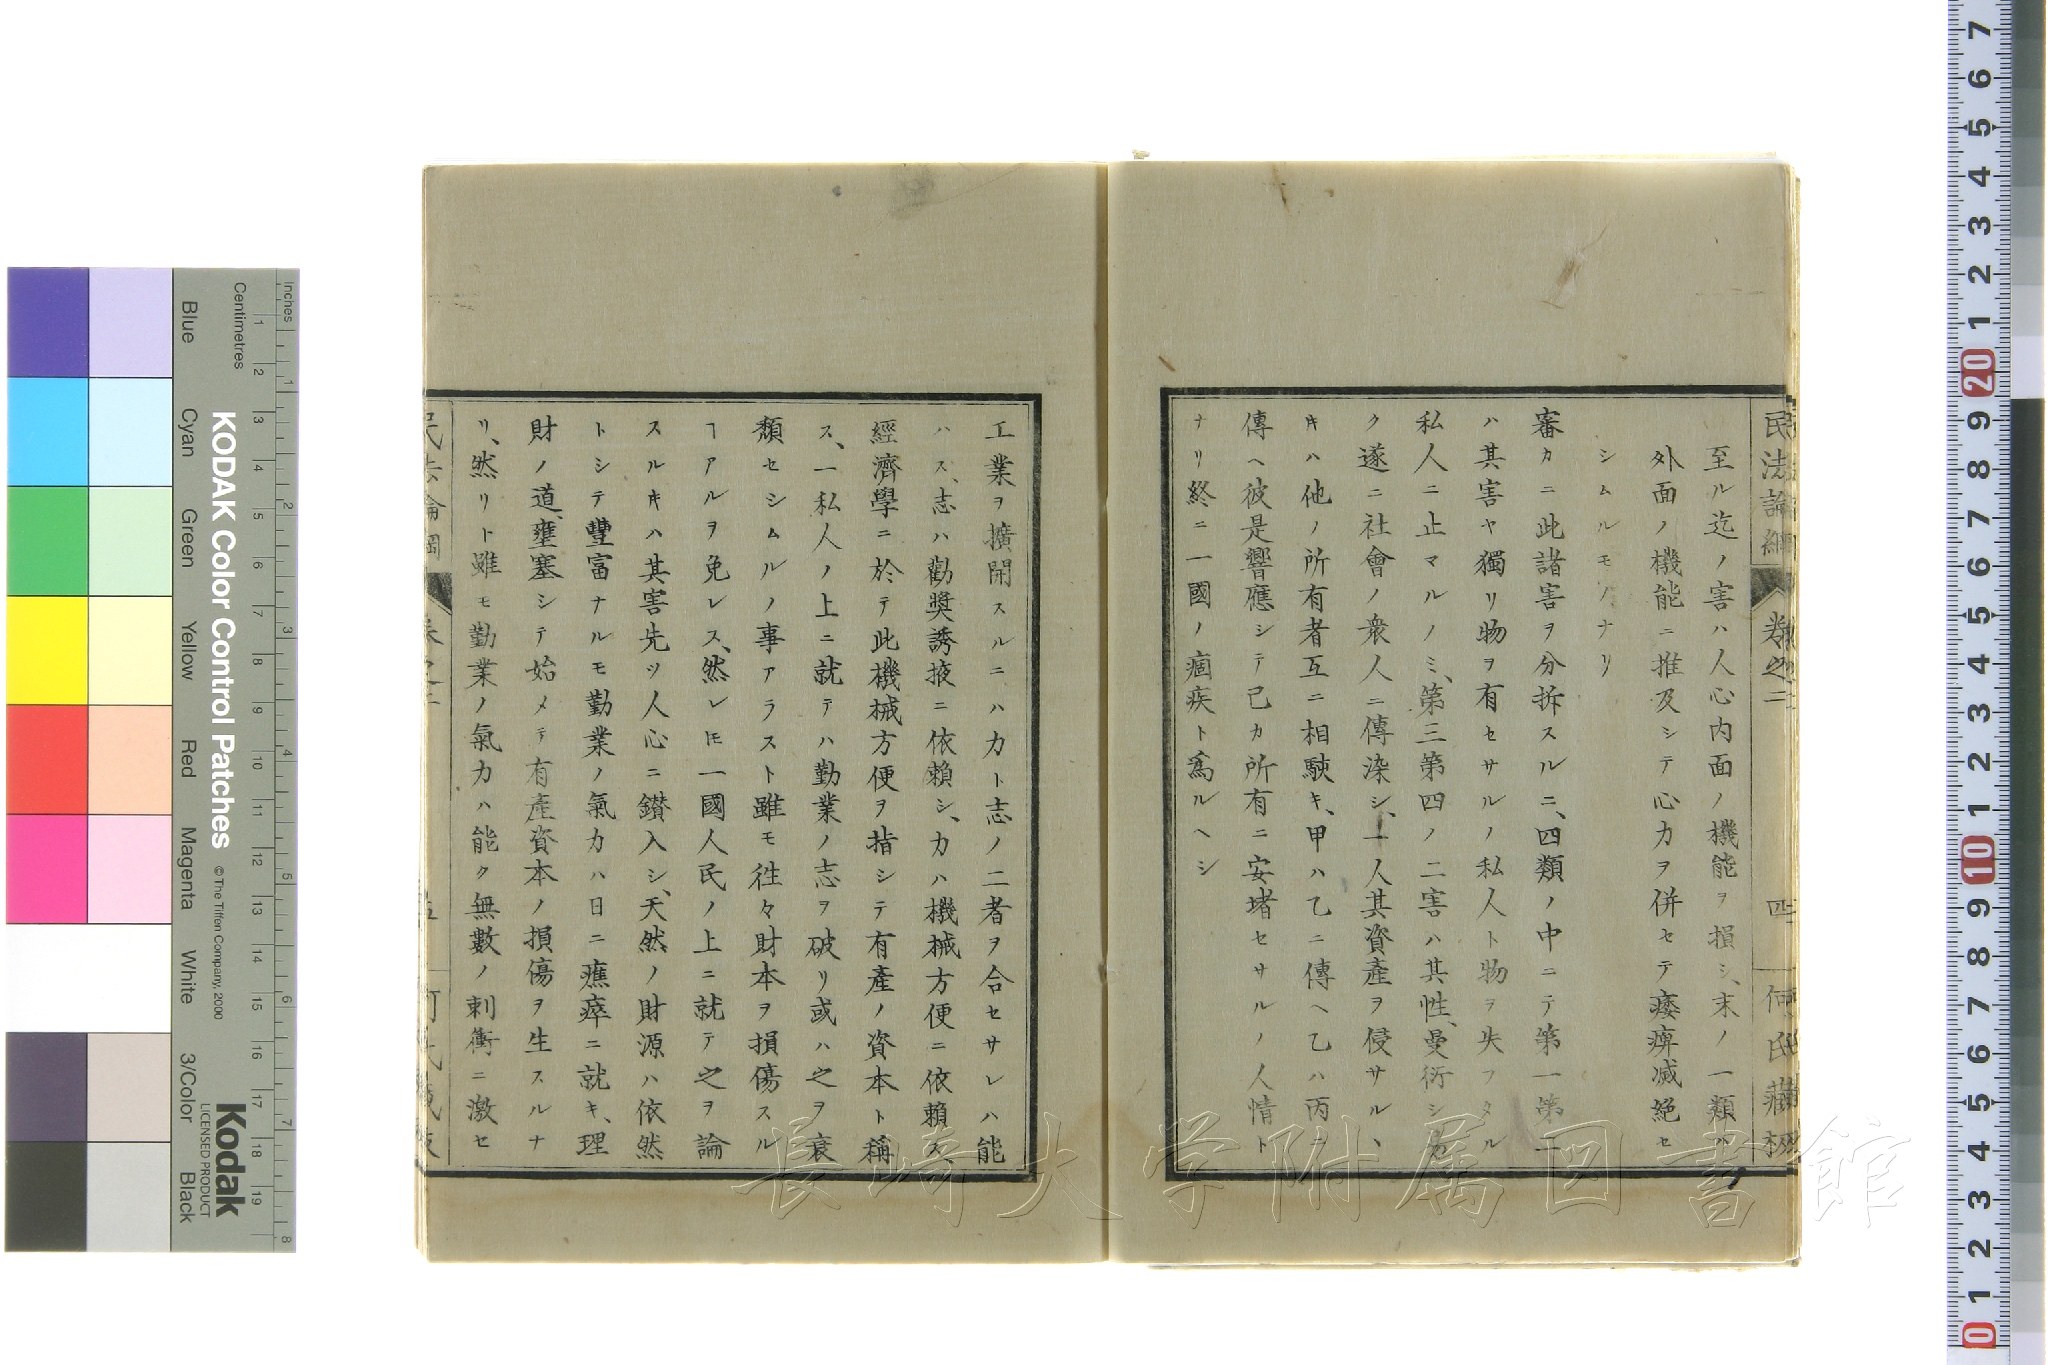 民法論綱
卷之二
四
何氏藏板
至ル迄ノ害ハ人心内面ノ機能ヲ損シ、末ノ一類ハ
外面ノ機能ニ推及シテ心力ヲ併セテ痿痺減絶セ
シムルモノナリ
審カニ此諸害ヲ分拆スルニ、四類ノ中ニテ第一第二
ハ其害ヤ獨リ物ヲ有セサルノ私人ト物ヲ失フタル
私人ニ止マルノミ、第三第四ノ二害ハ其性、曼衍シ易
ク遂ニ社會ノ衆人ニ傳染シ、一人其資產ヲ侵サル、
キハ他ノ所有者互ニ相駛キ、甲ハ乙ニ傳ヘ乙ハ丙ニ
傳ヘ彼是響應シテ己カ所有ニ安堵セサルノ人情ト
ナリ終ニ一國ノ痼疾ト爲ルヘシ
工業ヲ擴開スルニハ力ト志ノ二者ヲ合セサレハ能
ハス、志ハ勸奬誘掖ニ依賴シ、力ハ機械方便ニ依賴ス、
經濟學ニ於テ此機械方便ヲ指シテ有產ノ資本ト稱
ス、一私人ノ上ニ就テハ勤業ノ志ヲ破リ或ハ之ヲ衰
頽セシムルノ事アラスト雖モ徃々財本ヲ損傷スル
ヿアルヲ免レス、然レ𪜈一國人民ノ上ニ就テ之ヲ論
スルキハ其害先ツ人心ニ鑚入シ、天然ノ財源ハ依然
トシテ豐富ナルモ勤業ノ氣力ハ日ニ癄瘁ニ就キ、理
財ノ道、壅塞シテ始メテ有產資本ノ損傷ヲ生スルナ
リ、然リト雖モ勤業ノ氣力ハ能ク無數ノ刺衝ニ激セ
民法論綱
卷之二
五
何氏藏板
長崎大学附属図書館
KODAK Color Control Patches
© The Tiffen Company, 2000
Kodak
LICENSED PRODUCT
Blue
Cyan
Green
Yellow
Red
Magenta
White
3/Color
Black
Inches
1 2 3 4 5 6 7 8
Centimetres
1 2 3 4 5 6 7 8 9 10 11 12 13 14 15 16 17 18 19
7 6 5 4 3 2 1 20 9 8 7 6 5 4 3 2 1 10 9 8 7 6 5 4 3 2 1 0